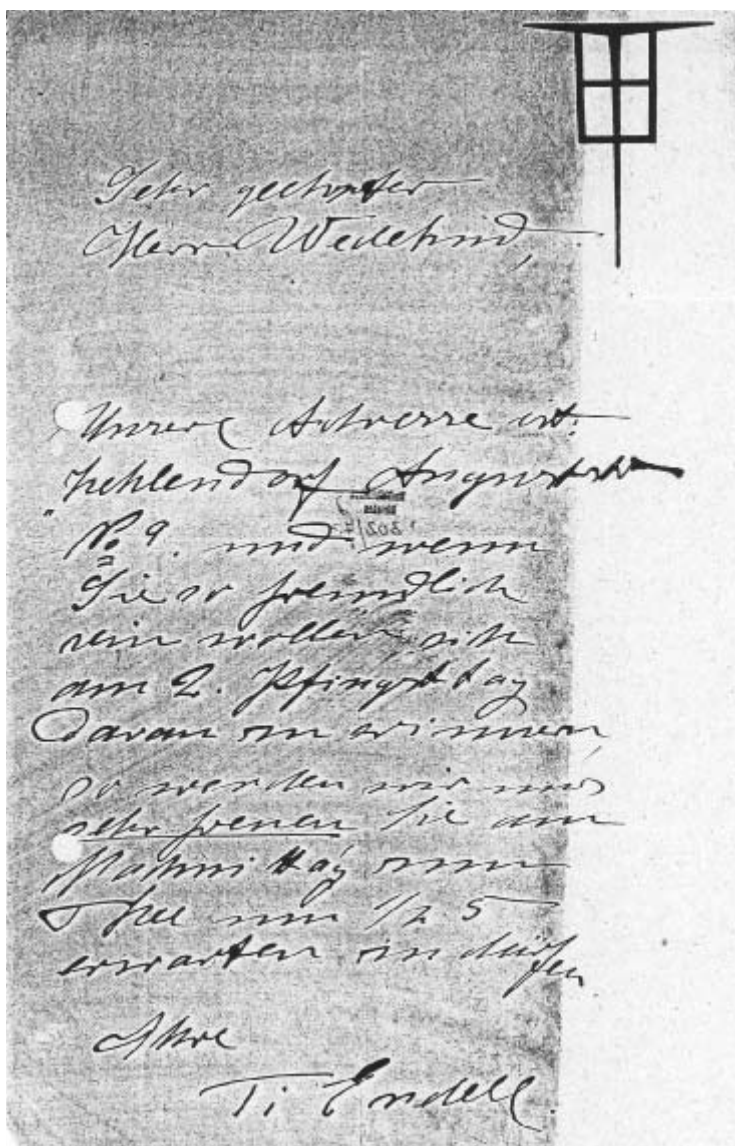 Sehr geehrter
Herr Wedekind,
Unsere Adresse ist:
Zehlendorf Auguststr
No 9. und wenn
Sie so freundlich
sein wollen sich
am 2. Pfingsttag
daran zu erinnern,
so werden wir uns
sehr freuen Sie am
Nachmittag zum
Thee um 1/2 5
erwarten zu dürfen
Ihre
Ti Endell.